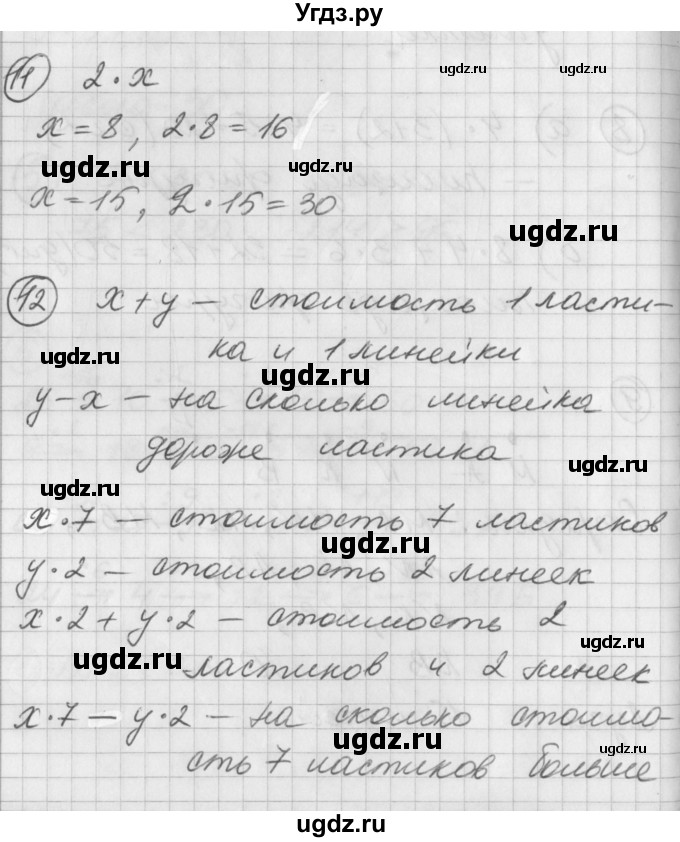 Угдз.ру
ugdz.ru
11 2·x
x=8, 2·8=16
ugdz.ru ugdz.ru
x=15, 2·15=30
12 x+y — стоимость 1 ласти-
ugdz.ru ка и 1 линейки
ugdz.ru
y-x — на сколько линейка
дороже ластика
ugdz.ru
ugdz.ru
x·7 — стоимость 7 ластиков
ugdz.ru
y·2 — стоимость 2 линеек
x·2+y·2 — стоимость 2
ugdz.ru ластиков и 2 линеек
x·7 — y·2 — на сколько стоимо-
ugdz.ru ugdz.ru
сть 7 ластиков больше
ugdz.ru